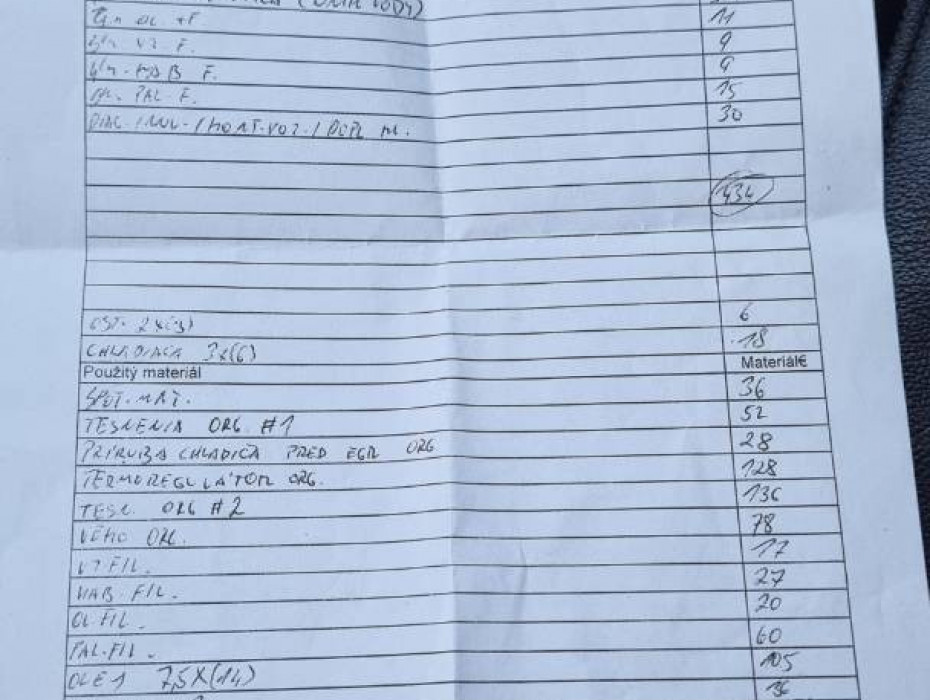 OL + F 11
VZ F. 9
KAB F. 9
PAL F. 15
DIAG. / NUL. / MONT. VOZ. / DOPL M. 30
434
OST. 2x(3) 6
CHLADIACA 3x(6) 18
Použitý materiál Materiál€
SPOT. MAT. 36
TESNENIA ORG. #1 52
PRÍRUBA CHLADIČA PRED EGR ORG 28
TERMOREGULÁTOR ORG. 128
TESN. ORG #2 136
VEKO ORG. 78
VZ FIL. 17
KAB. FIL. 27
OL FIL. 20
PAL. FIL. 60
OLEJ 7,5X(14) 105